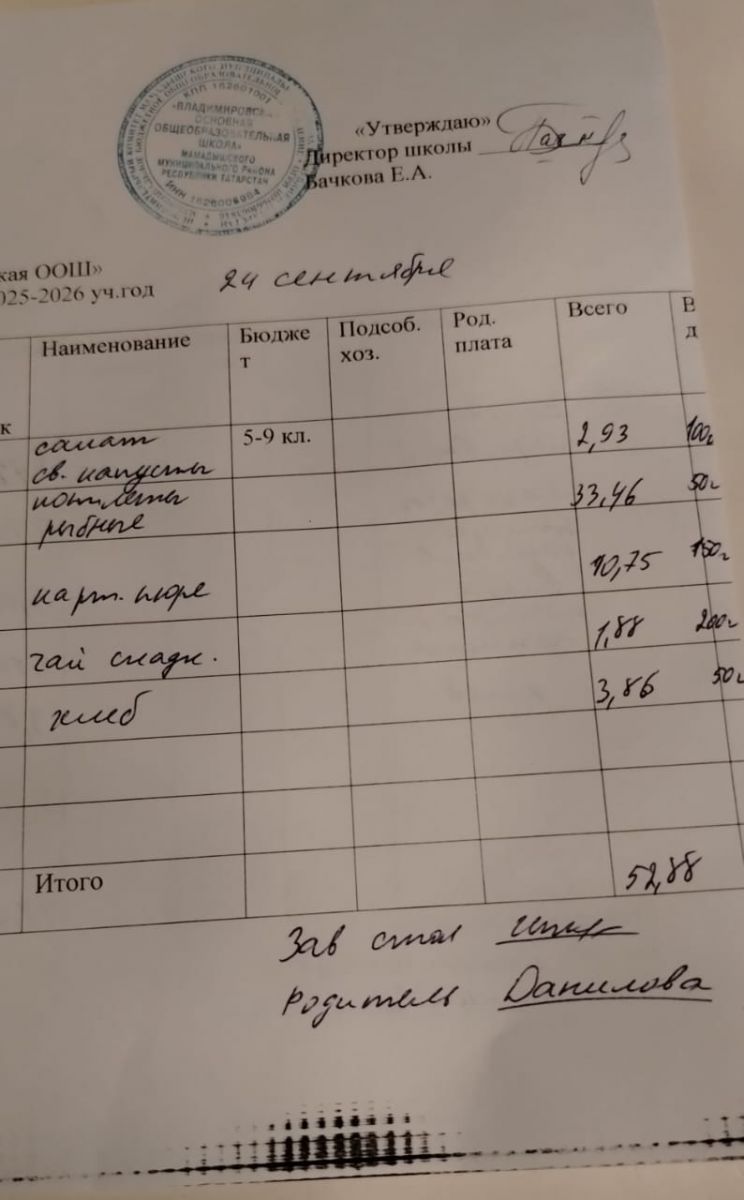 КПП 162601001
«ВЛАДИМИРОВСКАЯ
ОСНОВНАЯ
ОБЩЕОБРАЗОВАТЕЛЬНАЯ
ШКОЛА»
МАМАДЫШСКОГО
МУНИЦИПАЛЬНОГО РАЙОНА
РЕСПУБЛИКИ ТАТАРСТАН
«Утверждаю»
Директор школы
Бачкова Е.А.
кая ООШ»
025-2026 уч.год 24 сентября
к Наименование Бюдже Подсоб. Род. Всего В
т хоз. плата д
салат 5-9 кл. 2,93 100г
св. капусты
котлеты 33,46 50г
рыбные
карт. пюре 10,75 150г
чай сладк. 1,88 200г
хлеб 3,86 50г
Итого 52,88
Зав стол
Родитель Данилова